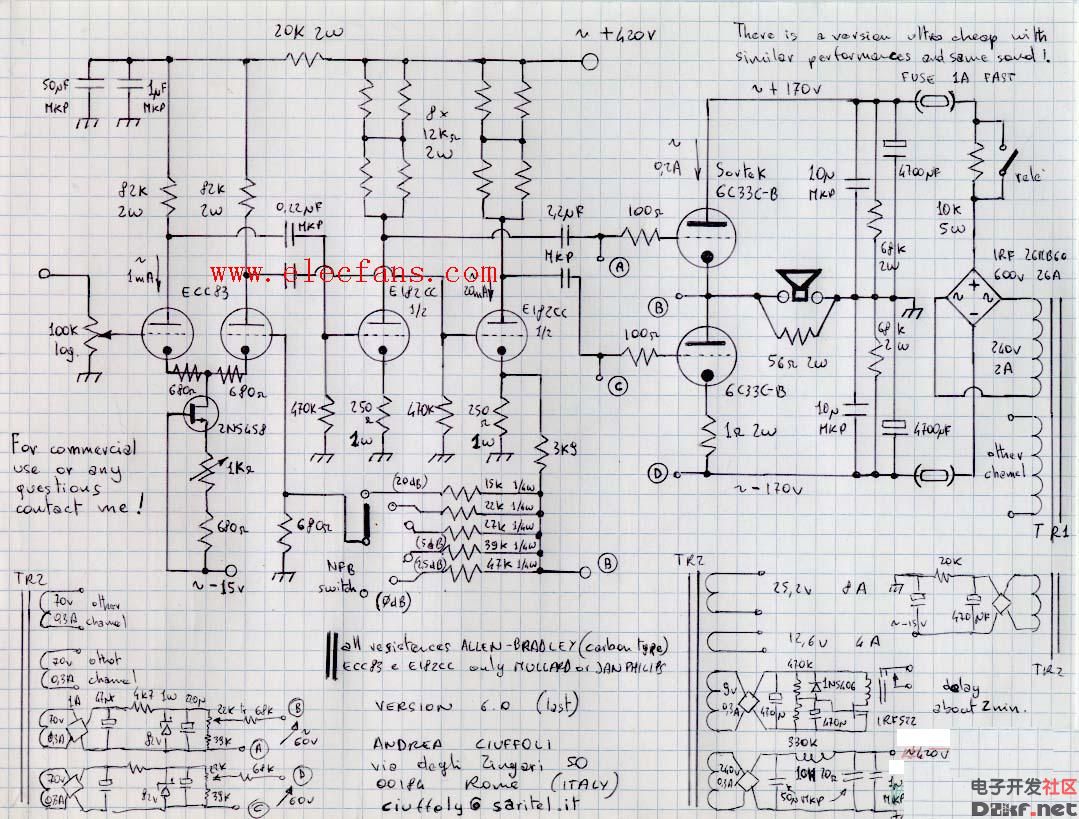 20K 2W
~ +420V
There is a version ultra cheap with
similar performances and same sound!
FUSE 1A FAST
50µF
MKP
1µF
MKP
8×
12KΩ
2W
~ +170V
~
0,2A
Sovtek
6C33C-B
10µ
MKP
4700µF
rele'
10K
5W
82K
2W
82K
2W
0,22µF
MKP
2,2µF
MKP
100Ω
A
68K
2W
IRF 26MB60
600V 26A
www.elecfans.com
~
1mA
ECC83
E182CC
1/2
~
20mA
E182CC
1/2
B
100K
log.
100Ω
C
56Ω 2W
6C33C-B
68K
2W
240V
2A
680Ω
680Ω
2N5458
470K
250
Ω
1W
470K
250
Ω
1W
1Ω 2W
10µ
MKP
4700µF
other
channel
For commercial
use or any
questions
contact me!
1KΩ
3K9
D
~ -170V
(20dB)
15K 1/4W
22K 1/4W
27K 1/4W
(5dB)
39K 1/4W
(2.5dB)
47K 1/4W
B
680Ω
680Ω
NFB
switch
(0dB)
~ -15V
TR1
TR2
70V
0,3A
other
channel
70V
0,3A
other
channel
TR2
25,2V 8A
12,6V 4A
20K
~ -15V
470µF
TR2
all resistences ALLEN-BRADLEY (carbon type)
ECC83 e E182CC only MULLARD or JAN PHILIPS
VERSION 6.0 (last)
ANDREA CIUFFOLI
via degli Zingari 50
00184 Rome (ITALY)
ciuffoly@saritel.it
1A
4K7 1W
70V
0,3A
82V
22K
68K
39K
B
A
~60V
70V
82V
39K
D
C
~60V
9V
0,3A
470K
470µ
1N5406
470µ
IRF522
delay
about 2 min.
240V
0,3A
330K
10H 70Ω
50µ MKP
~420V
电子开发社区
DZkf.net